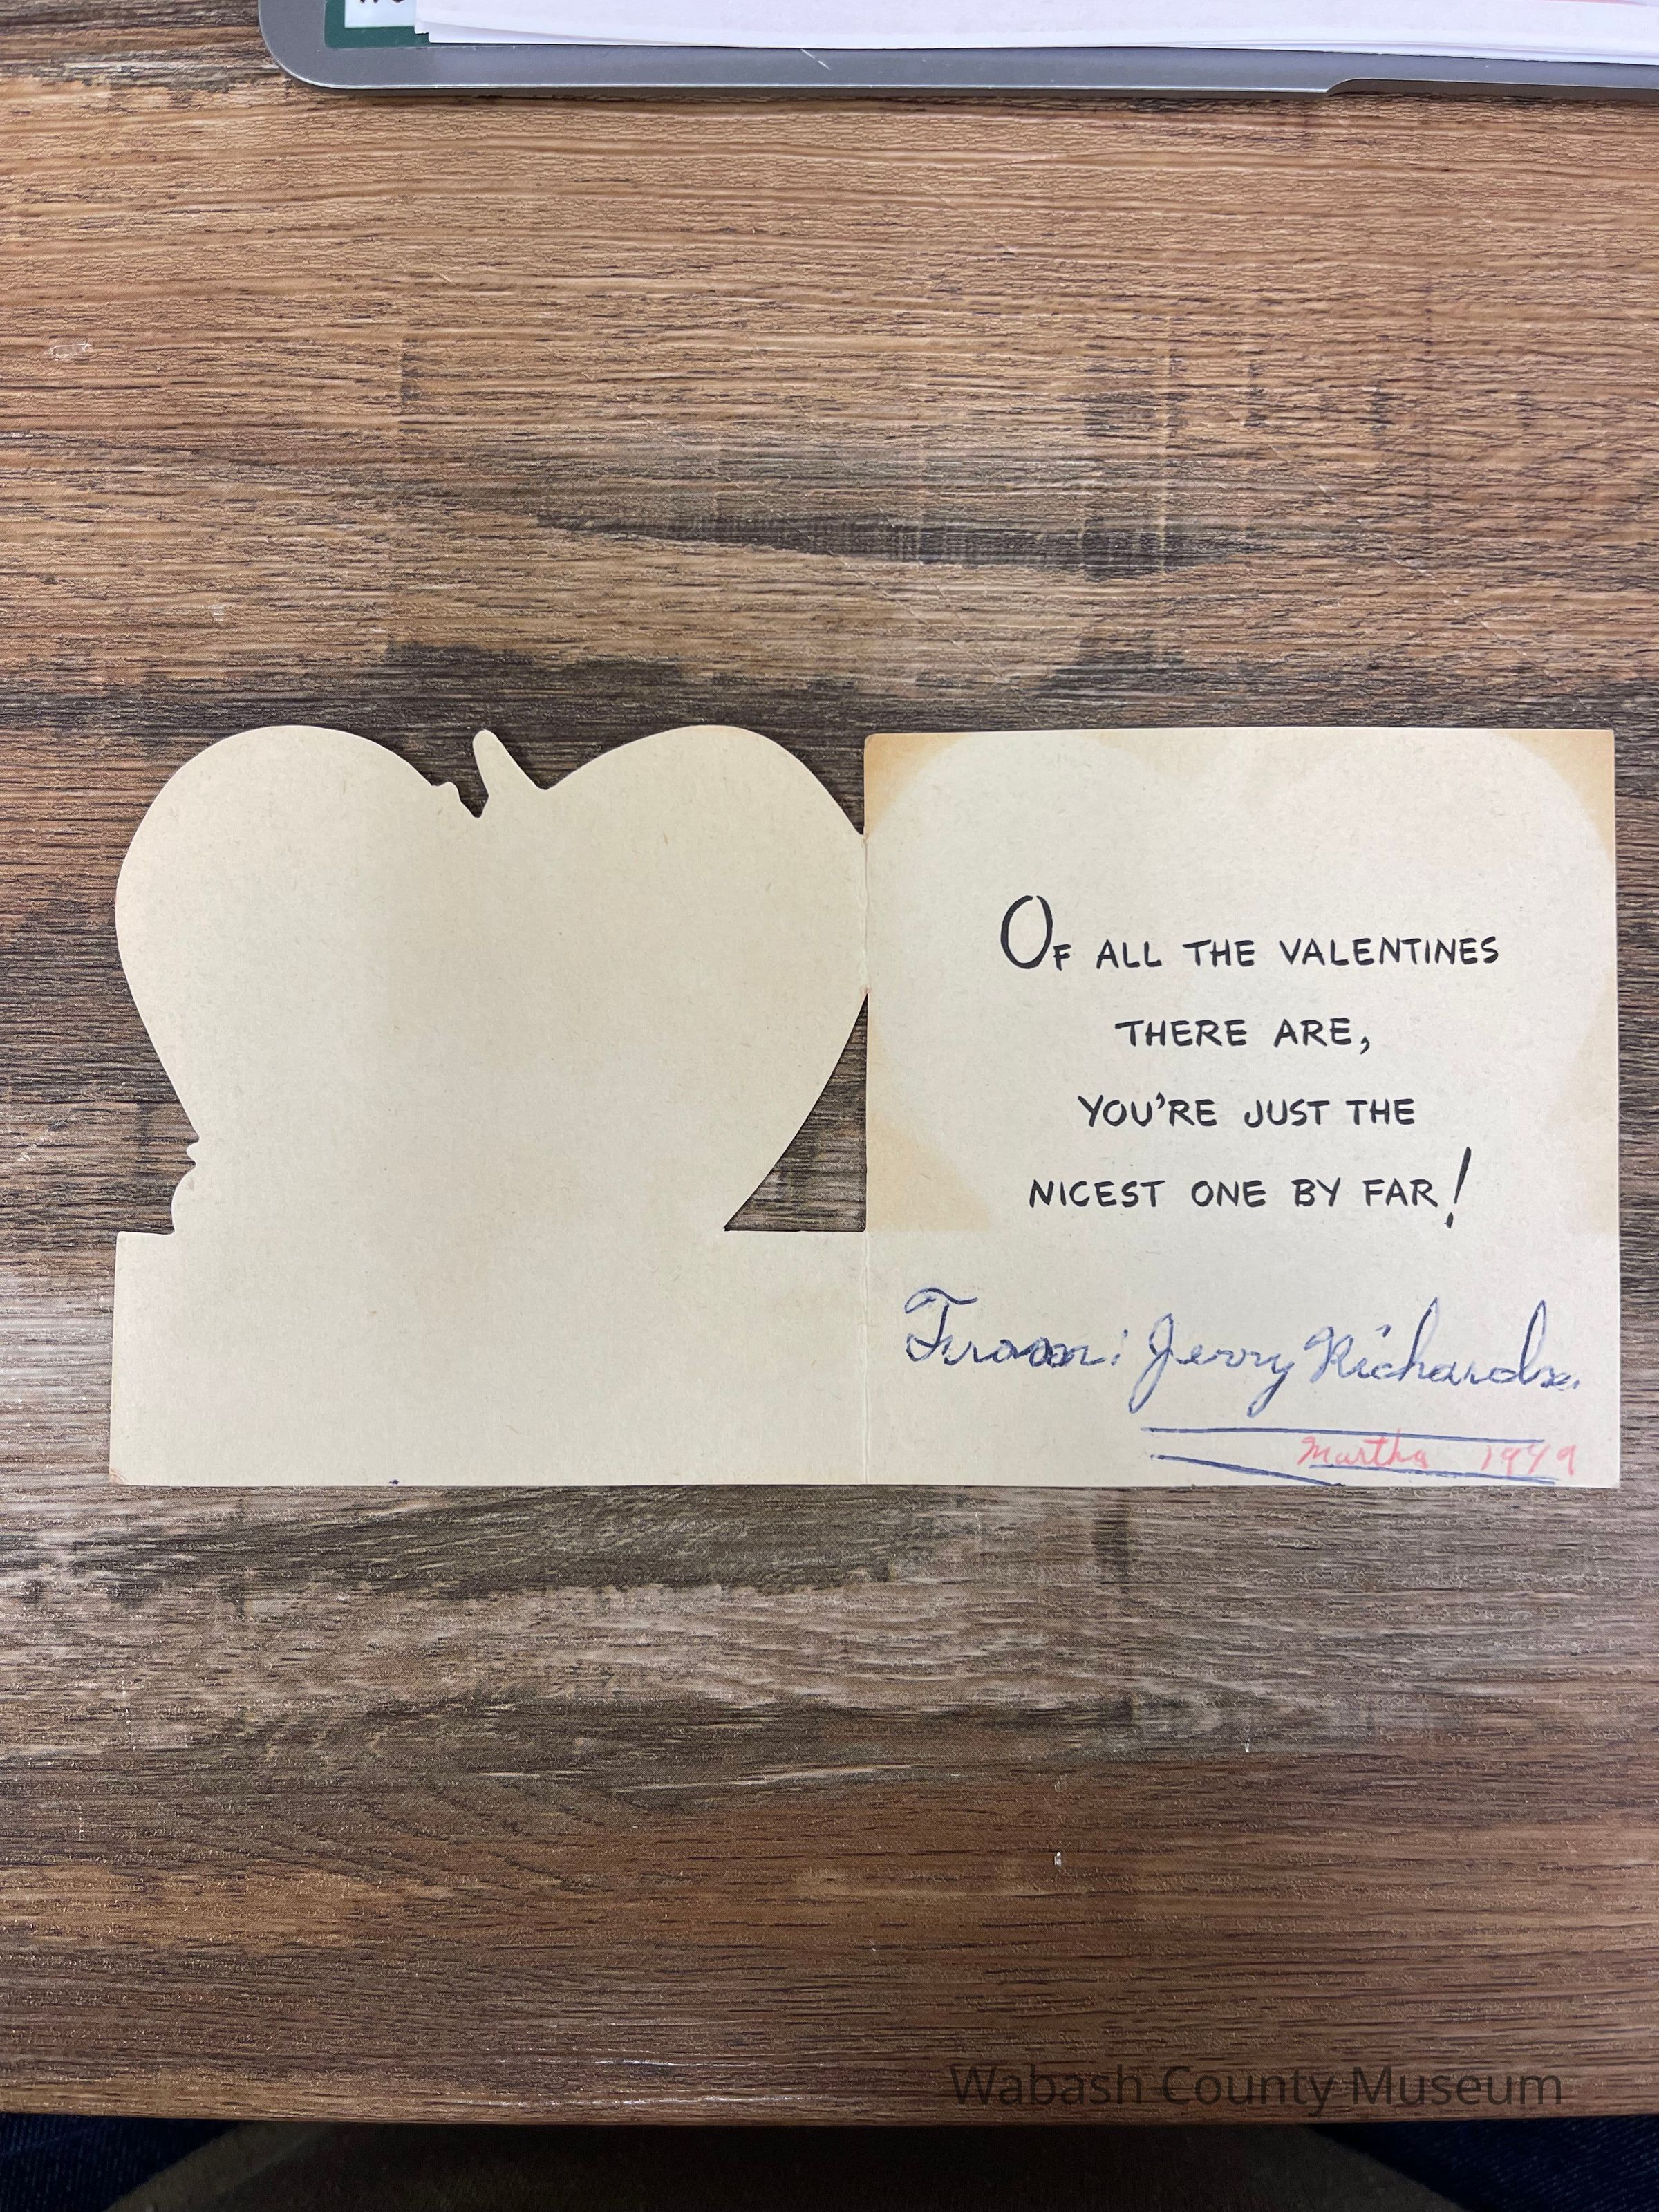 OF ALL THE VALENTINES
THERE ARE,
YOU'RE JUST THE
NICEST ONE BY FAR!
From: Jerry
Martha 1949
Wabash County Museum